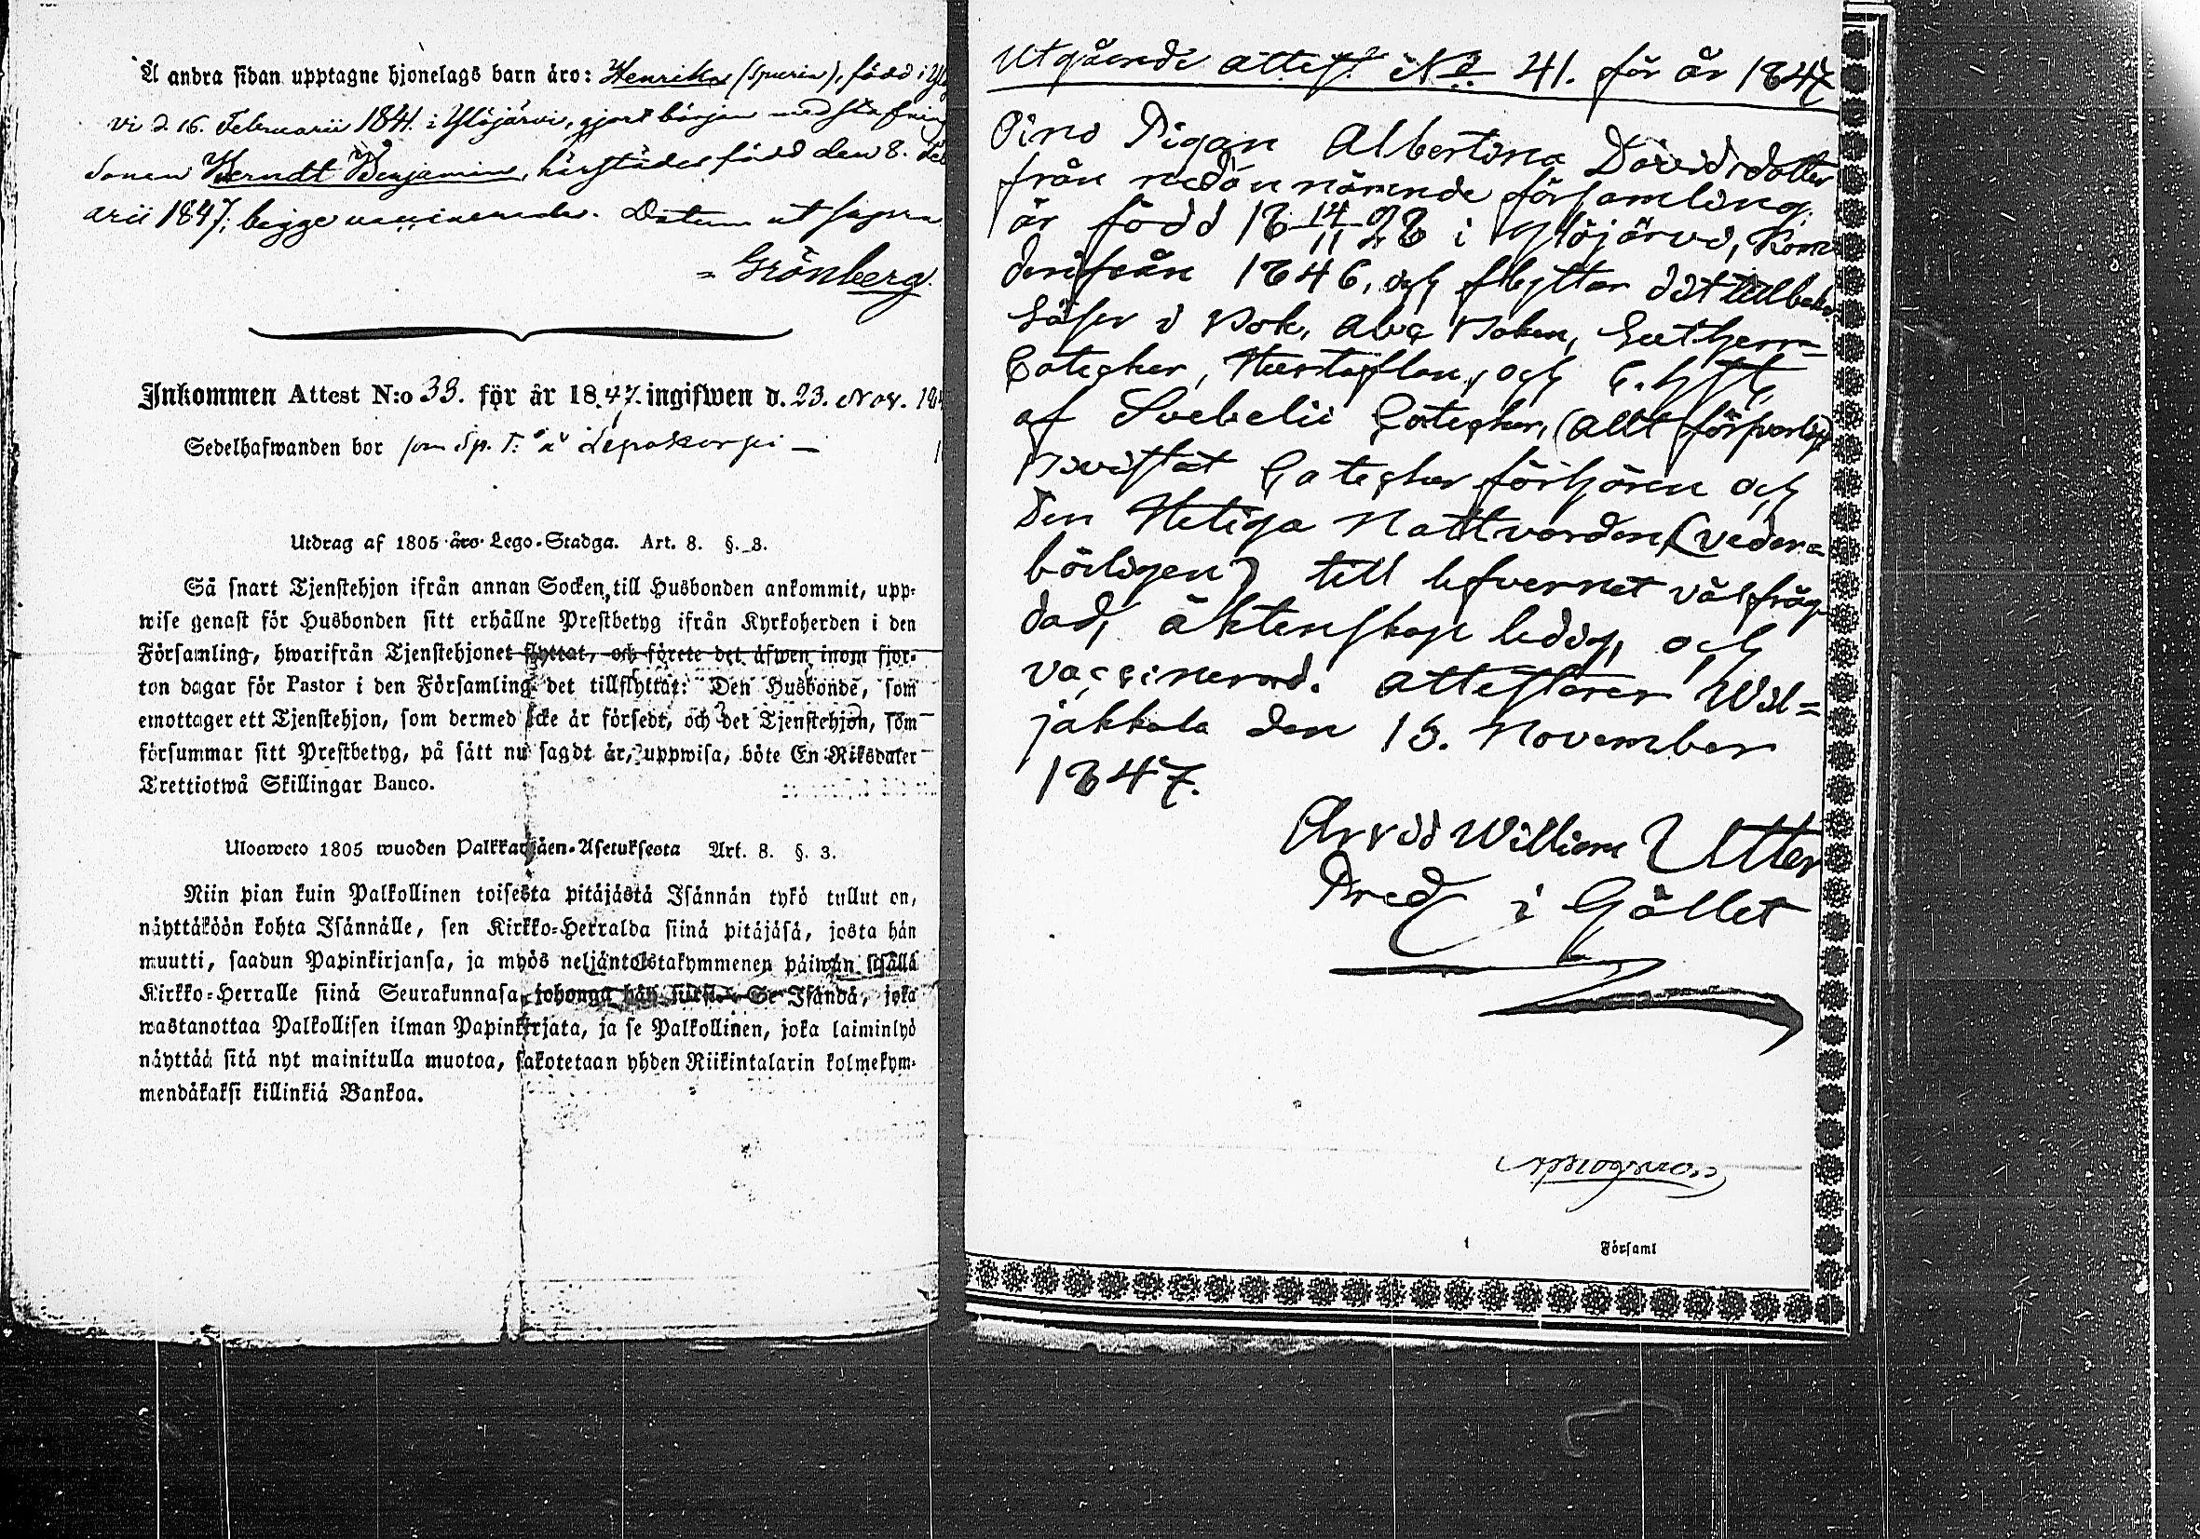 Å andra sidan upptagne hjonelags barn äro: Henrika (spuria), född i Ylö
vi d. 16. Februarii 1841. i Ylöjärvi, gjort början med stafning
Sonen Berndt Benjamin, härstädes född den 8. Feb
arii 1847; begge vaccinerade. Datum ut supra
Grönberg.
Inkommen Attest N:o 33. för år 1847. ingifwen d. 23. Nov. 184
Sedelhafwanden bor som Sp. T. å Lepakorpi —
Utdrag af 1805 års Lego-Stadga. Art. 8. §. 3.
Så snart Tjenstehjon ifrån annan Socken till Husbonden ankommit, upp-
wise genast för Husbonden sitt erhållne Prestbetyg ifrån Kyrkoherden i den
Församling, hwarifrån Tjenstehjonet flyttat, och förete det äfwen inom fjor-
ton dagar för Pastor i den Församling det tillflyttat: Den Husbonde, som
emottager ett Tjenstehjon, som dermed icke är försedt, och det Tjenstehjon, som
försummar sitt Prestbetyg, på sätt nu sagdt är, uppwisa, böte En Riksdaler
Trettiotwå Skillingar Banco.
Uloswcto 1805 wuoden Palkkawäen-Asetuksesta Art. 8. §. 3.
Niin pian kuin Palkollinen toisesta pitäjästä Isännän tykö tullut on,
näyttäköön kohta Isännälle, sen Kirkko-Herralda siinä pitäjäsä, josta hän
muutti, saadun Papinkirjansa, ja myös neljäntoistakymmenen päiwän sisällä
Kirkko-Herralle siinä Seurakunnasa johonga hän siirsi. Se Isändä, joka
wastanottaa Palkollisen ilman Papinkirjata, ja se Palkollinen, joka laiminlyö
näyttää sitä nyt mainitulla muotoa, sakotetaan yhden Riikintalarin kolmekym-
mendäkaksi killinkiä Bankoa.
Utgående attest No 41. för år 1847
Pigan Albertina Davidsdotter
från nedannämnde församling,
är född 18 14/11 28 i Ylöjärvi, kom
derifrån 1846, och flyttar dit tillbaka.
Läser i Bok, Abc Boken, Lutheri
Cateches, Hustaflan, och
af Svebelii Cateches, (allt försvarligt)
Bivistat Catechesförhören och
den Heliga Nattvarden (veder=
börligen) till lefvernet välfräg
dad, äktenskap ledig, och
vaccinerad. Attesterar Wil=
jakkala den 15. November
1847.
Arvid William Utter
Pred i Gället
Församl